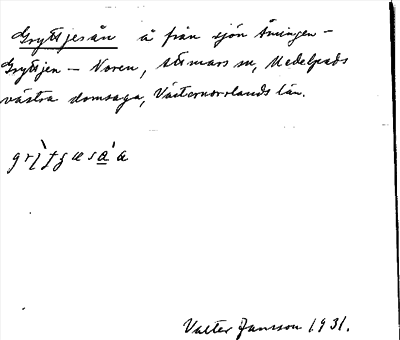 Gryttjesån å från sjön Åmingen -
Gryttjen - Noren, Attmars sn, Medelpads
västra domsaga, Västernorrlands län.
Valter Jansson 1931.